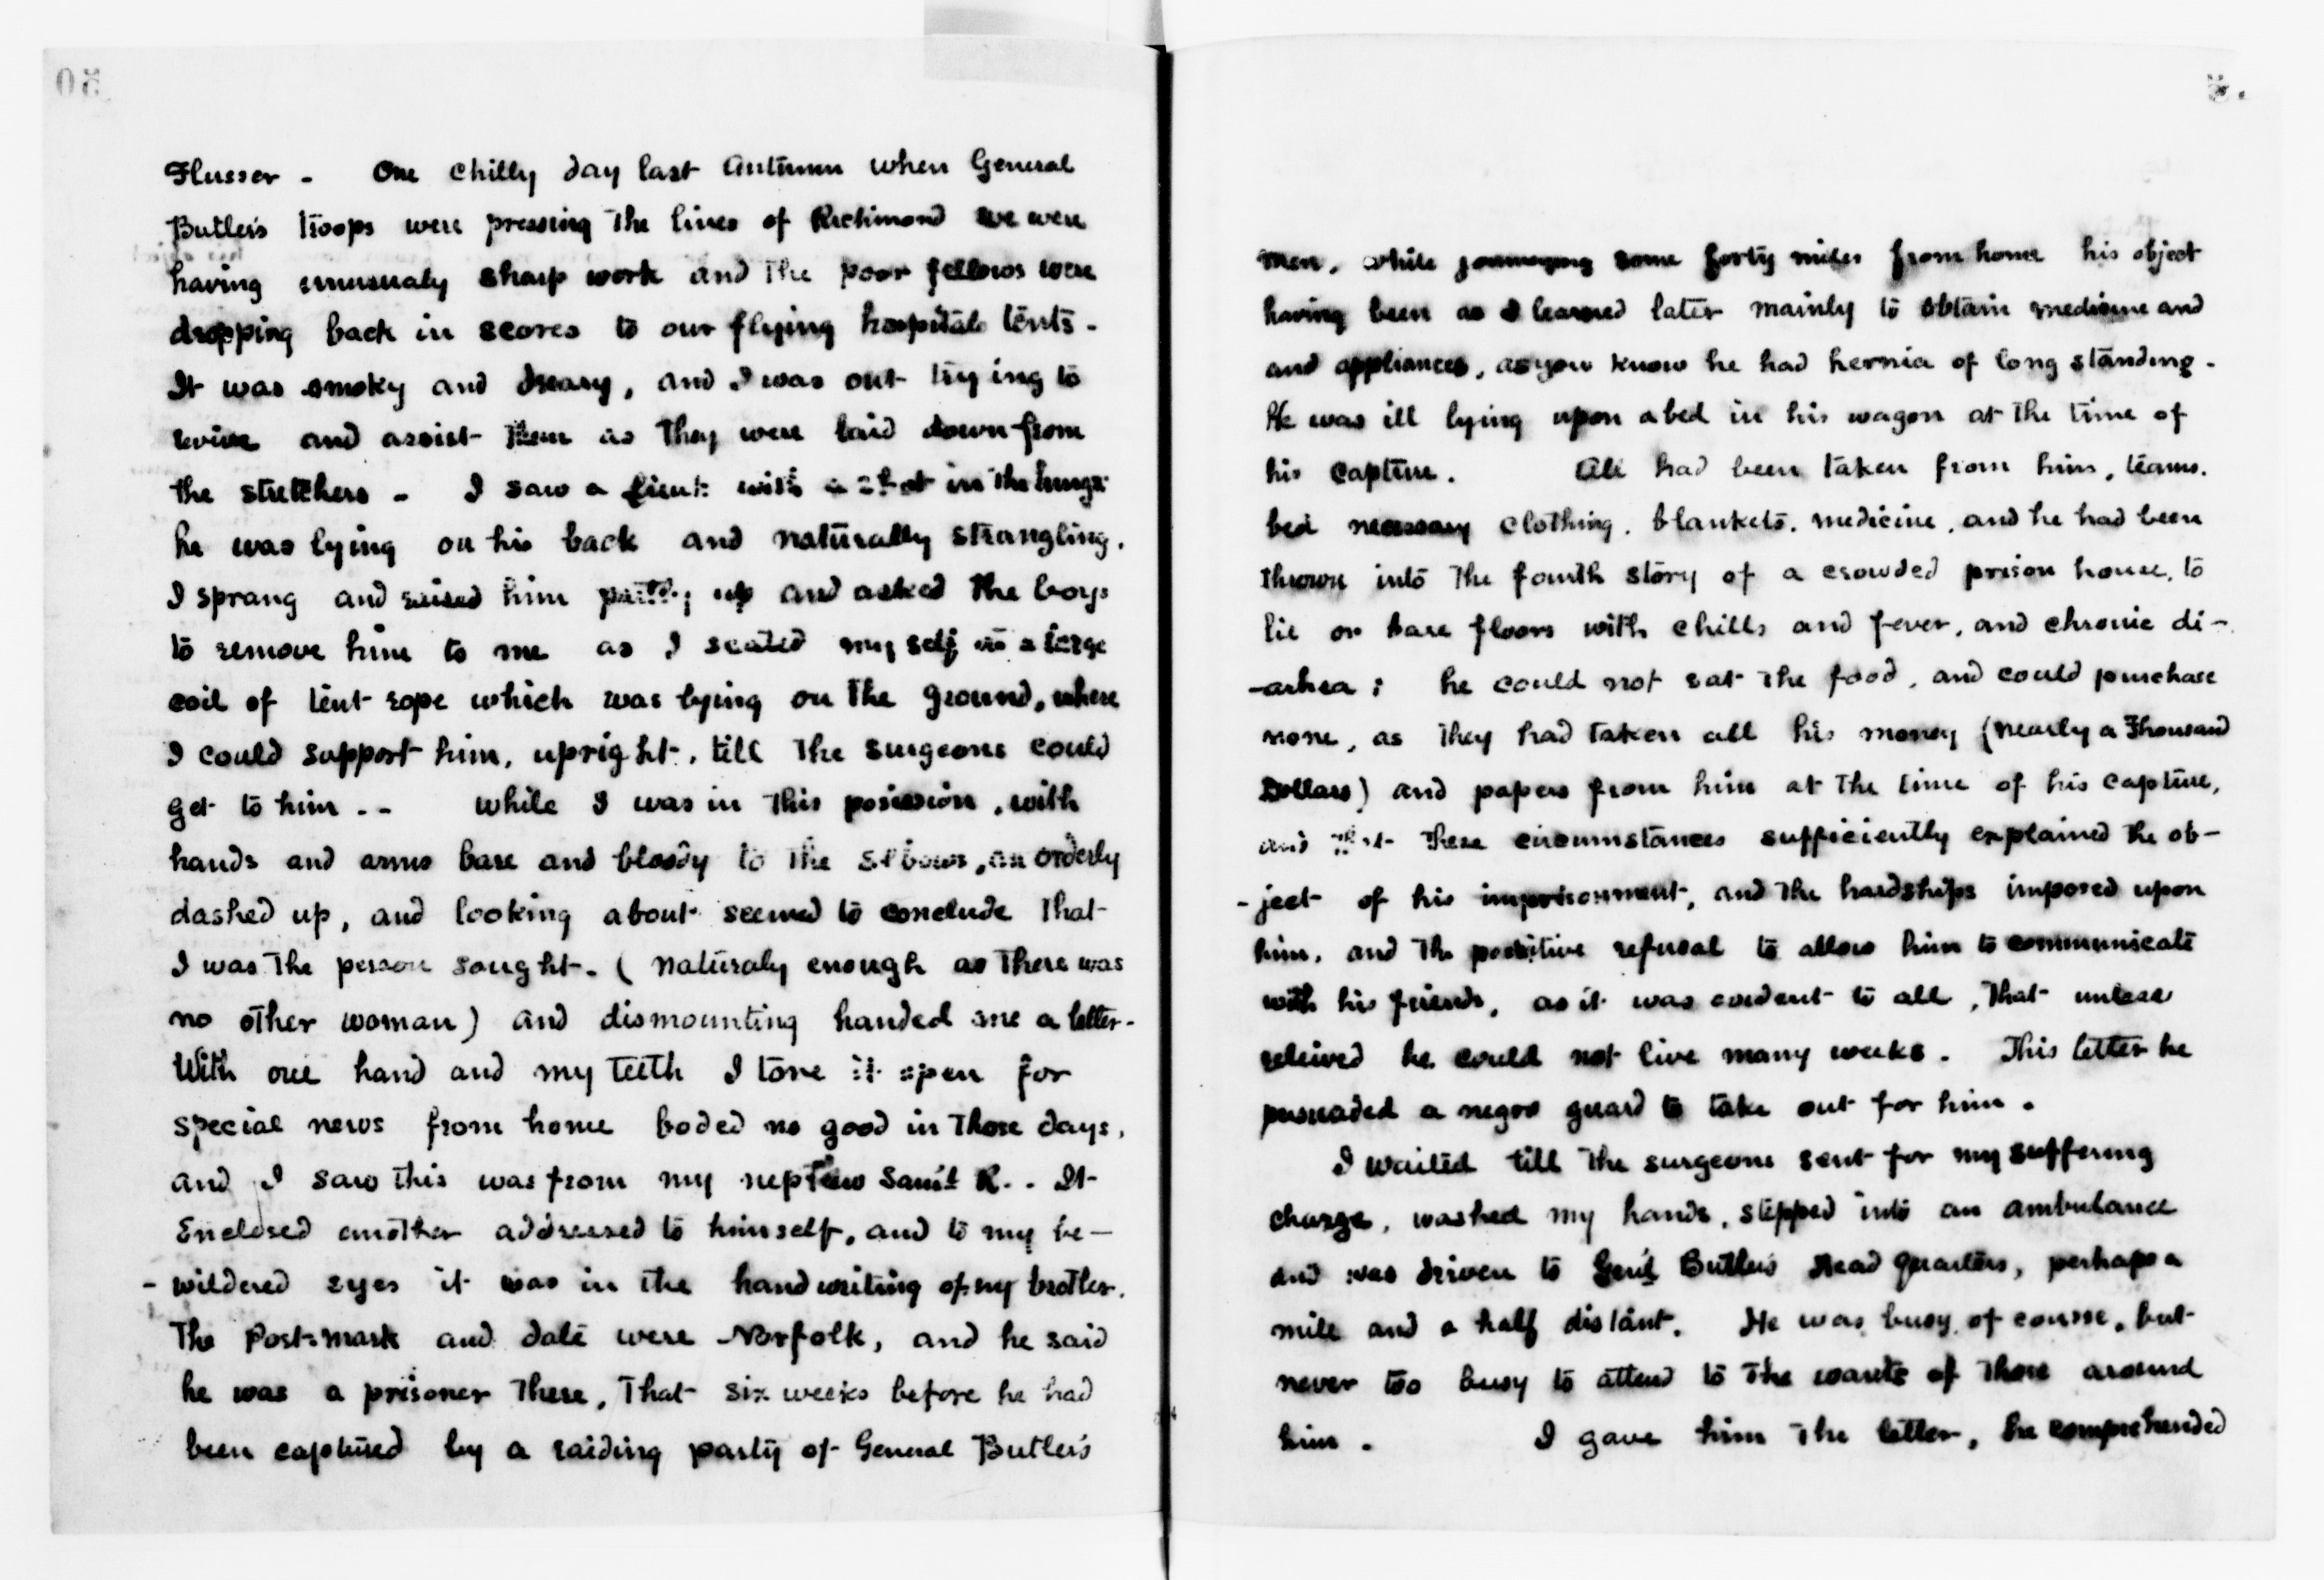 50
Flusser - One chilly day last Autumn when General
Butler's troops were pressing the lines of Richmond we were
having unusualy sharp work and the poor fellows were
dropping back in scores to our flying hospitals tents -
It was smoky and dreary, and I was out trying to
revive and assist them as they were laid down from
the stretchers - I saw a Lieut: with a shot in the lungs
he was lying on his back and naturally strangling.
I sprang and raised him partly up and asked the boys
to remove him to me as I seated my self in a large
coil of tent rope which was lying on the ground, where
I could support him, upright, till the surgeons could
get to him - - while I was in this posission, with
hands and arms bare and bloody to the elbows, an orderly
dashed up, and looking about seemed to conclude that
I was the person sought. (naturaly enough as there was
no other woman) and dismounting handed me a letter -
With one hand and my teeth I tore it open for
special news from home boded no good in those days,
and I saw this was from my nephew Sam'l R. . It
Enclosed another addressed to himself, and to my be-
- wildered eyes it was in the hand writing of my brother.
The Post-mark and date were Norfolk, and he said
he was a prisoner there, that six weeks before he had
been captured by a raiding party of General Butler's
men, while journeying some forty miles from home his object
having been as I learned later mainly to obtain medicine and
and appliances, as you know he had hernia of long standing -
He was ill lying upon a bed in his wagon at the time of
his capture. All had been taken from him, teams.
bed necessary clothing, blankets, medicine, and he had been
thrown into the fourth story of a crowded prison house, to
lie on bare floors with chills and fever, and chronic di-
-arhea; he could not eat the food, and could purchase
none, as they had taken all his money (nearly a Thousand
Dollars) and papers from him at the time of his capture,
and that these circumstances sufficiently explained the ob-
- ject of his imprisonment, and the hardships imposed upon
him, and the posititive refusal to allow him to communicate
with his friends, as it was evident to all, that unless
releived he could not live many weeks. This letter he
persuaded a negro guard to take out for him.
I waited till the surgeons sent for my suffering
charge, washed my hands, stepped into an ambulance
and was driven to Gen'l Butler's Head quarters, perhaps a
mile and a half distant. He was busy of course, but
never too busy to attend to the wants of those around
him. I gave him the letter, he comprehended